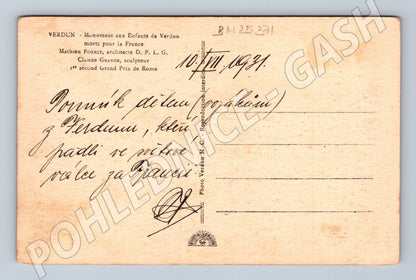 VERDUN - Monument aux Enfants de Verdun
morts pour la France
Mathieu FOREST, architecte D. P. L. G.
Claude GRANGE, sculpteur
1er second Grand Prix de Rome
BM25371
10/VII 1931.
Pomník dětem (vojákům)
z Verdunu, kteří
padli ve světové
válce za Francii.
Photo Verdun N. C. Reproduction interdite
POHLEDNICE - GASH